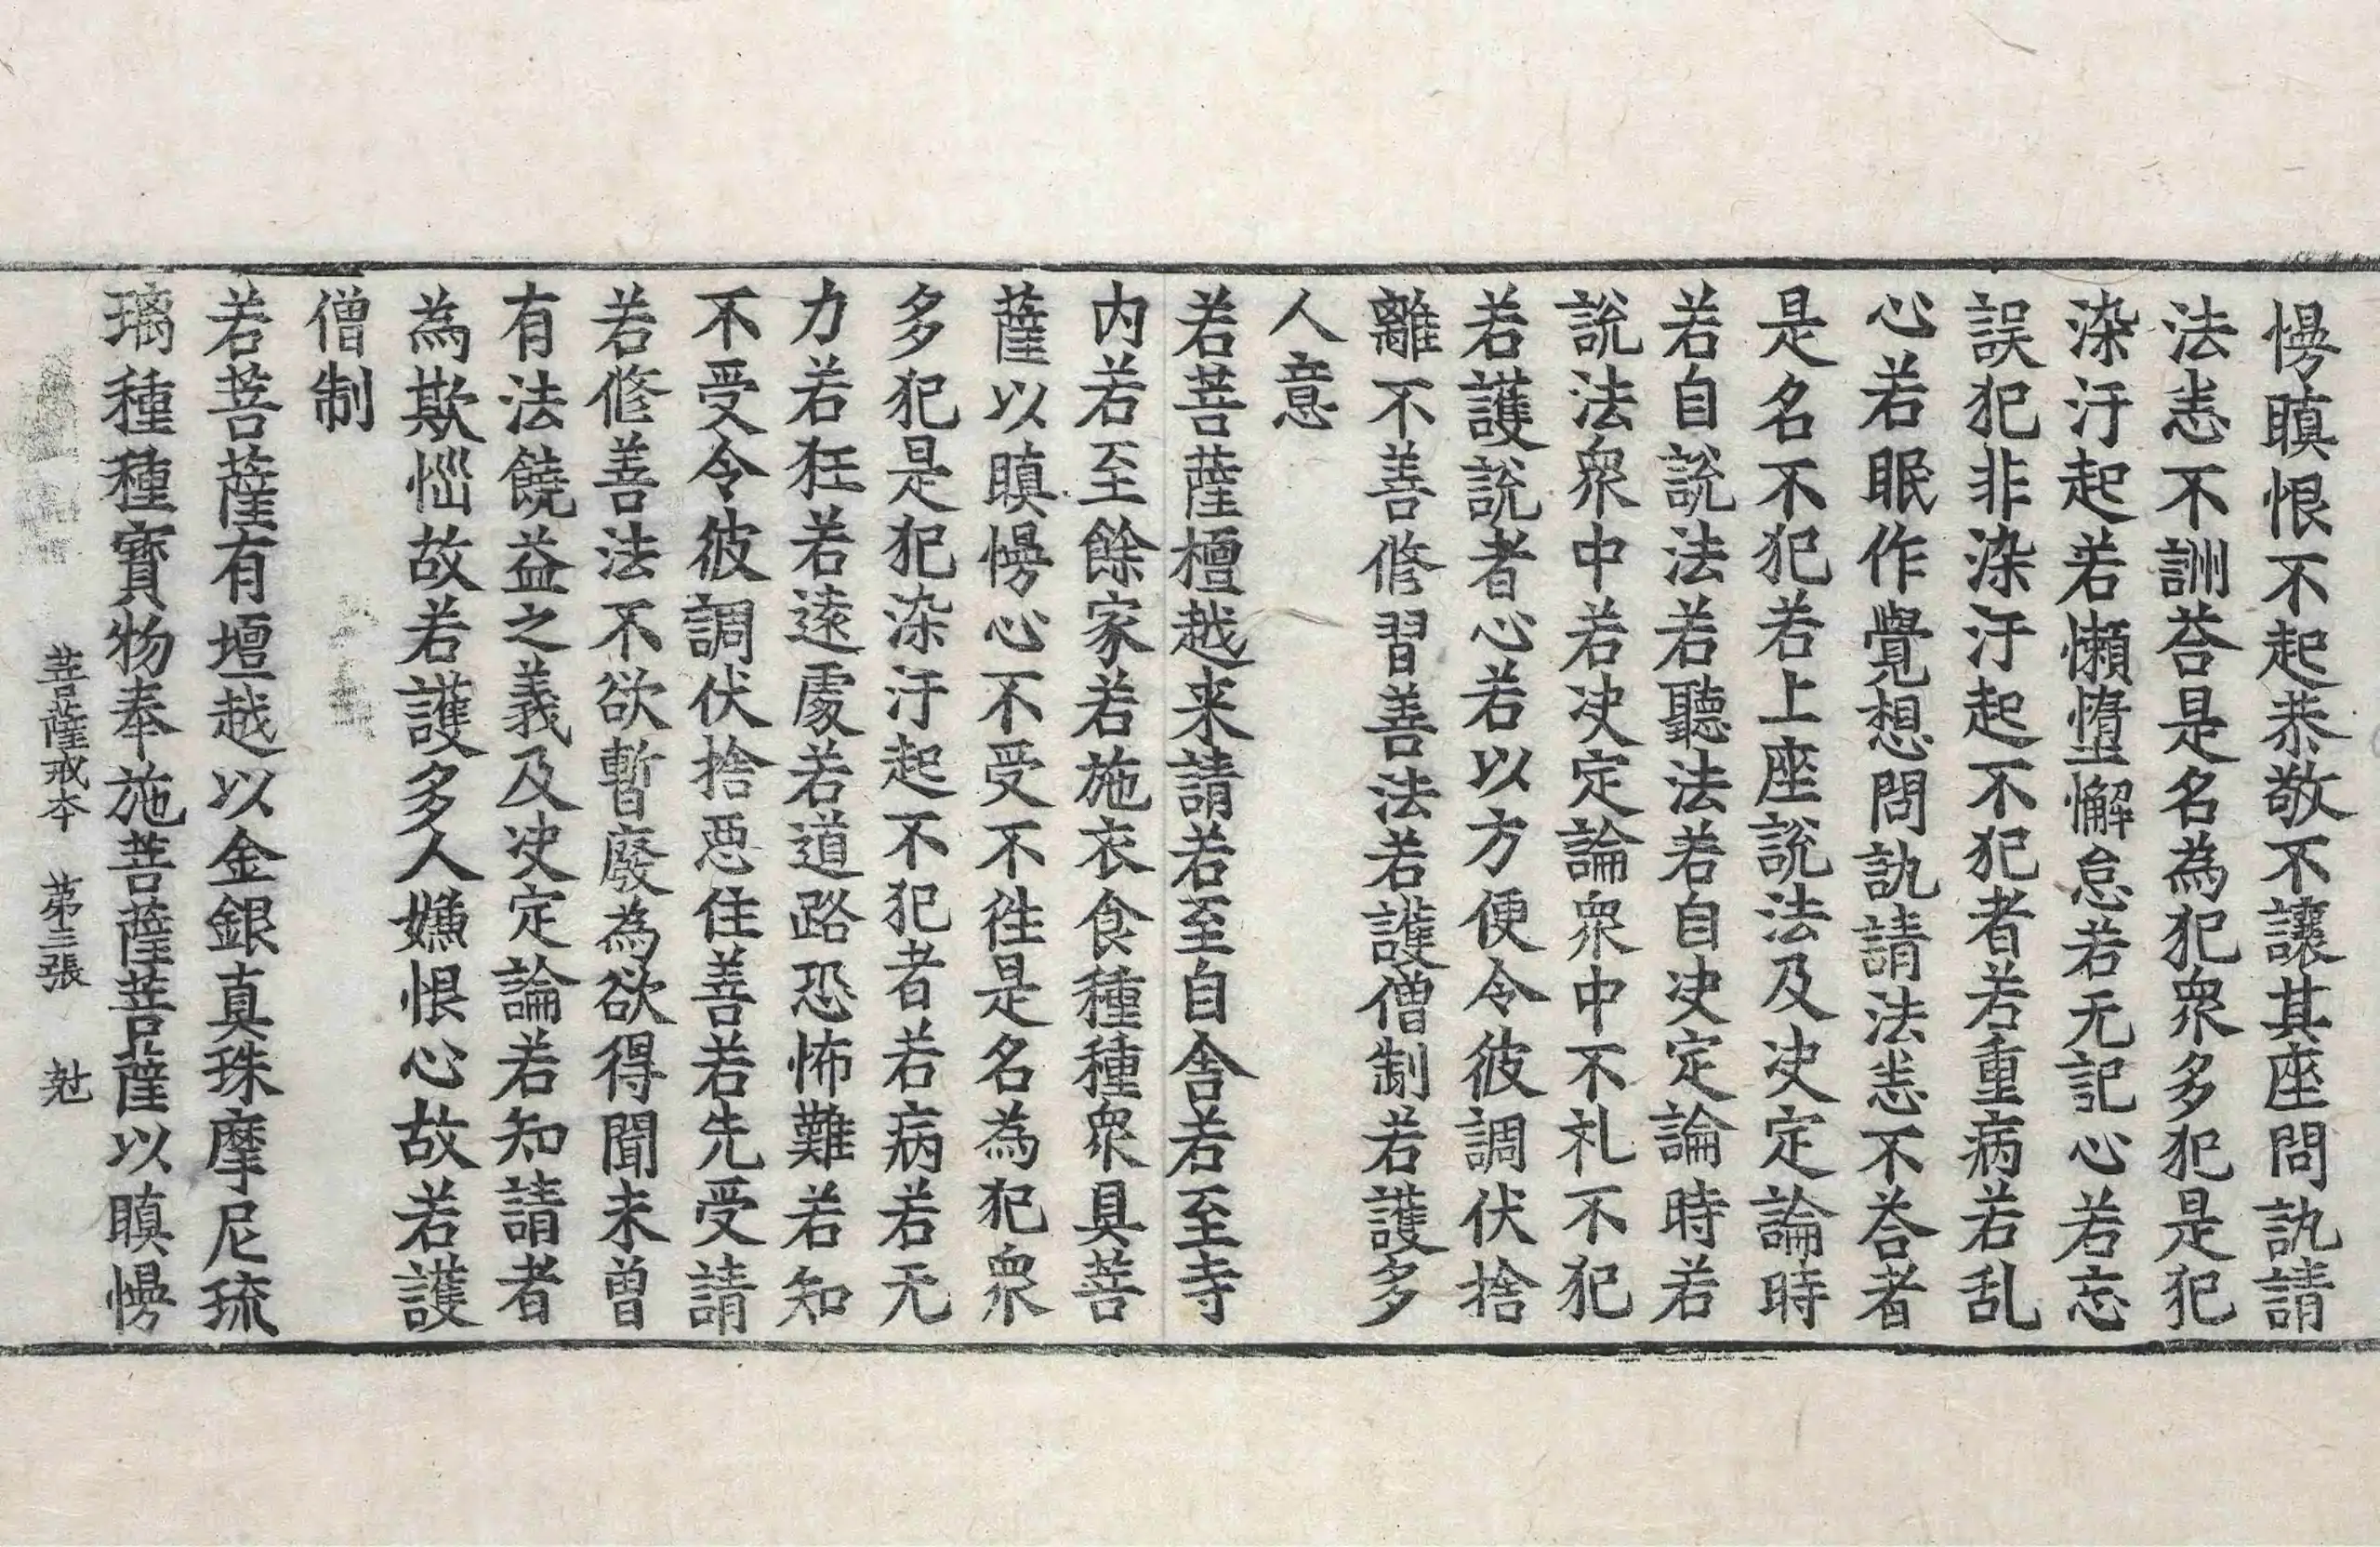 慢瞋恨不起恭敬不讓其座問訊請
法恚不詶荅是名為犯衆多犯是犯
染汙起若懶墮懈怠若无記心若忘
誤犯非染汙起不犯者若重病若乱
心若眠作覺想問訊請法恚不荅者
是名不犯若上座說法及决定論時
若自說法若聽法若自决定論時若
說法衆中若决定論衆中不礼不犯
若護說者心若以方便令彼調伏捨
離不善修習善法若護僧制若護多
人意
若菩薩檀越来請若至自舍若至寺
内若至餘家若施衣食種種衆具菩
薩以瞋慢心不受不往是名為犯衆
多犯是犯染汙起不犯者若病若无
力若狂若遠處若道路恐怖難若知
不受令彼調伏捨惡住善若先受請
若修善法不欲暫廢為欲得聞未曾
有法饒益之義及决定論若知請者
為欺惱故若護多人嫌恨心故若護
僧制
若菩薩有壇越以金銀真珠摩尼琉
璃種種寶物奉施菩薩菩薩以瞋慢
菩薩戒本 苐三張 尅